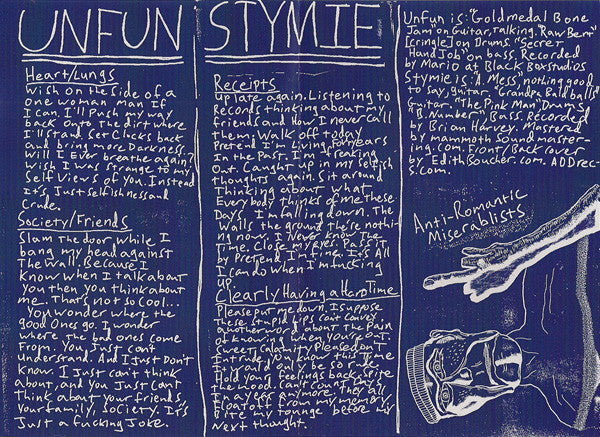 UNFUN
Heart/Lungs
Wish on the side of a
one woman man If
I can I'll push my way
back Onto the dirt where
I'll stand. Set Clocks back
and bring more Darkness.
Will I Ever breathe again?
Wish I was strange to my
Self Views of you. Instead
It's Just Selfishness and
Crude.
Society/Friends
Slam the door while I
bang my head against
the wall. Because I
know when I talk about
you then you think about
me.. That's not so Cool...
You wonder where the
good Ones go. I wonder
where the bad ones come
from. You Just can't
understand. And I Just Don't
know. I Just can't think
about, and you Just Cant
think about your friends,
your family, Society. It's
Just a fucking Joke.
STYMIE
Receipts
Up late again. Listening to
Records thinking about my
friends and How I never call
them. Walk off today
Pretend I'm Living for years
In the Past. I'm freaking
Out. Caught up in my selfish
thoughts again. Sit around
Thinking about what
Everybody thinks of me these
Days. I'm falling down. The
Walls the ground there's noth-
ing now. I Never know the
Time. Close my eyes. Pass it
by Pretend I'm fine. It's All
I can do when I'm fucking
up.
Clearly Having a Hard Time
Please put me down. I suppose
These stupid Lips cant Convey
another word about the Pain
of knowing when you're out.
Sweet Calamity Please don't
Intrude you know this time
It would only be so rude.
Hold your feelings back, spite
the blood. Can't count the days
In a year anymore. They all
Float out from my memory
Bite my tounge before my
Next thought.
Unfun is: "Goldmedal Bone
Jam" on Guitar, talking. "Raw Berr"
Cringle Jon Drums "Secret
Hand Job" on bass. Recorded
by Mario at Black Box studios
Stymie is: A. Mess, nothing good
to say, guitar. "Grandpa Bald balls"
Guitar. "The Pink Man" Drums
"B. Number" Bass. Recorded
by Brian Harvey. Mastered
by mammoth Sound master-
ing.com. Front/Back cover
by EdithBoucher.com. ADDrec-
s.com.
Anti-Romantic
Miserablists